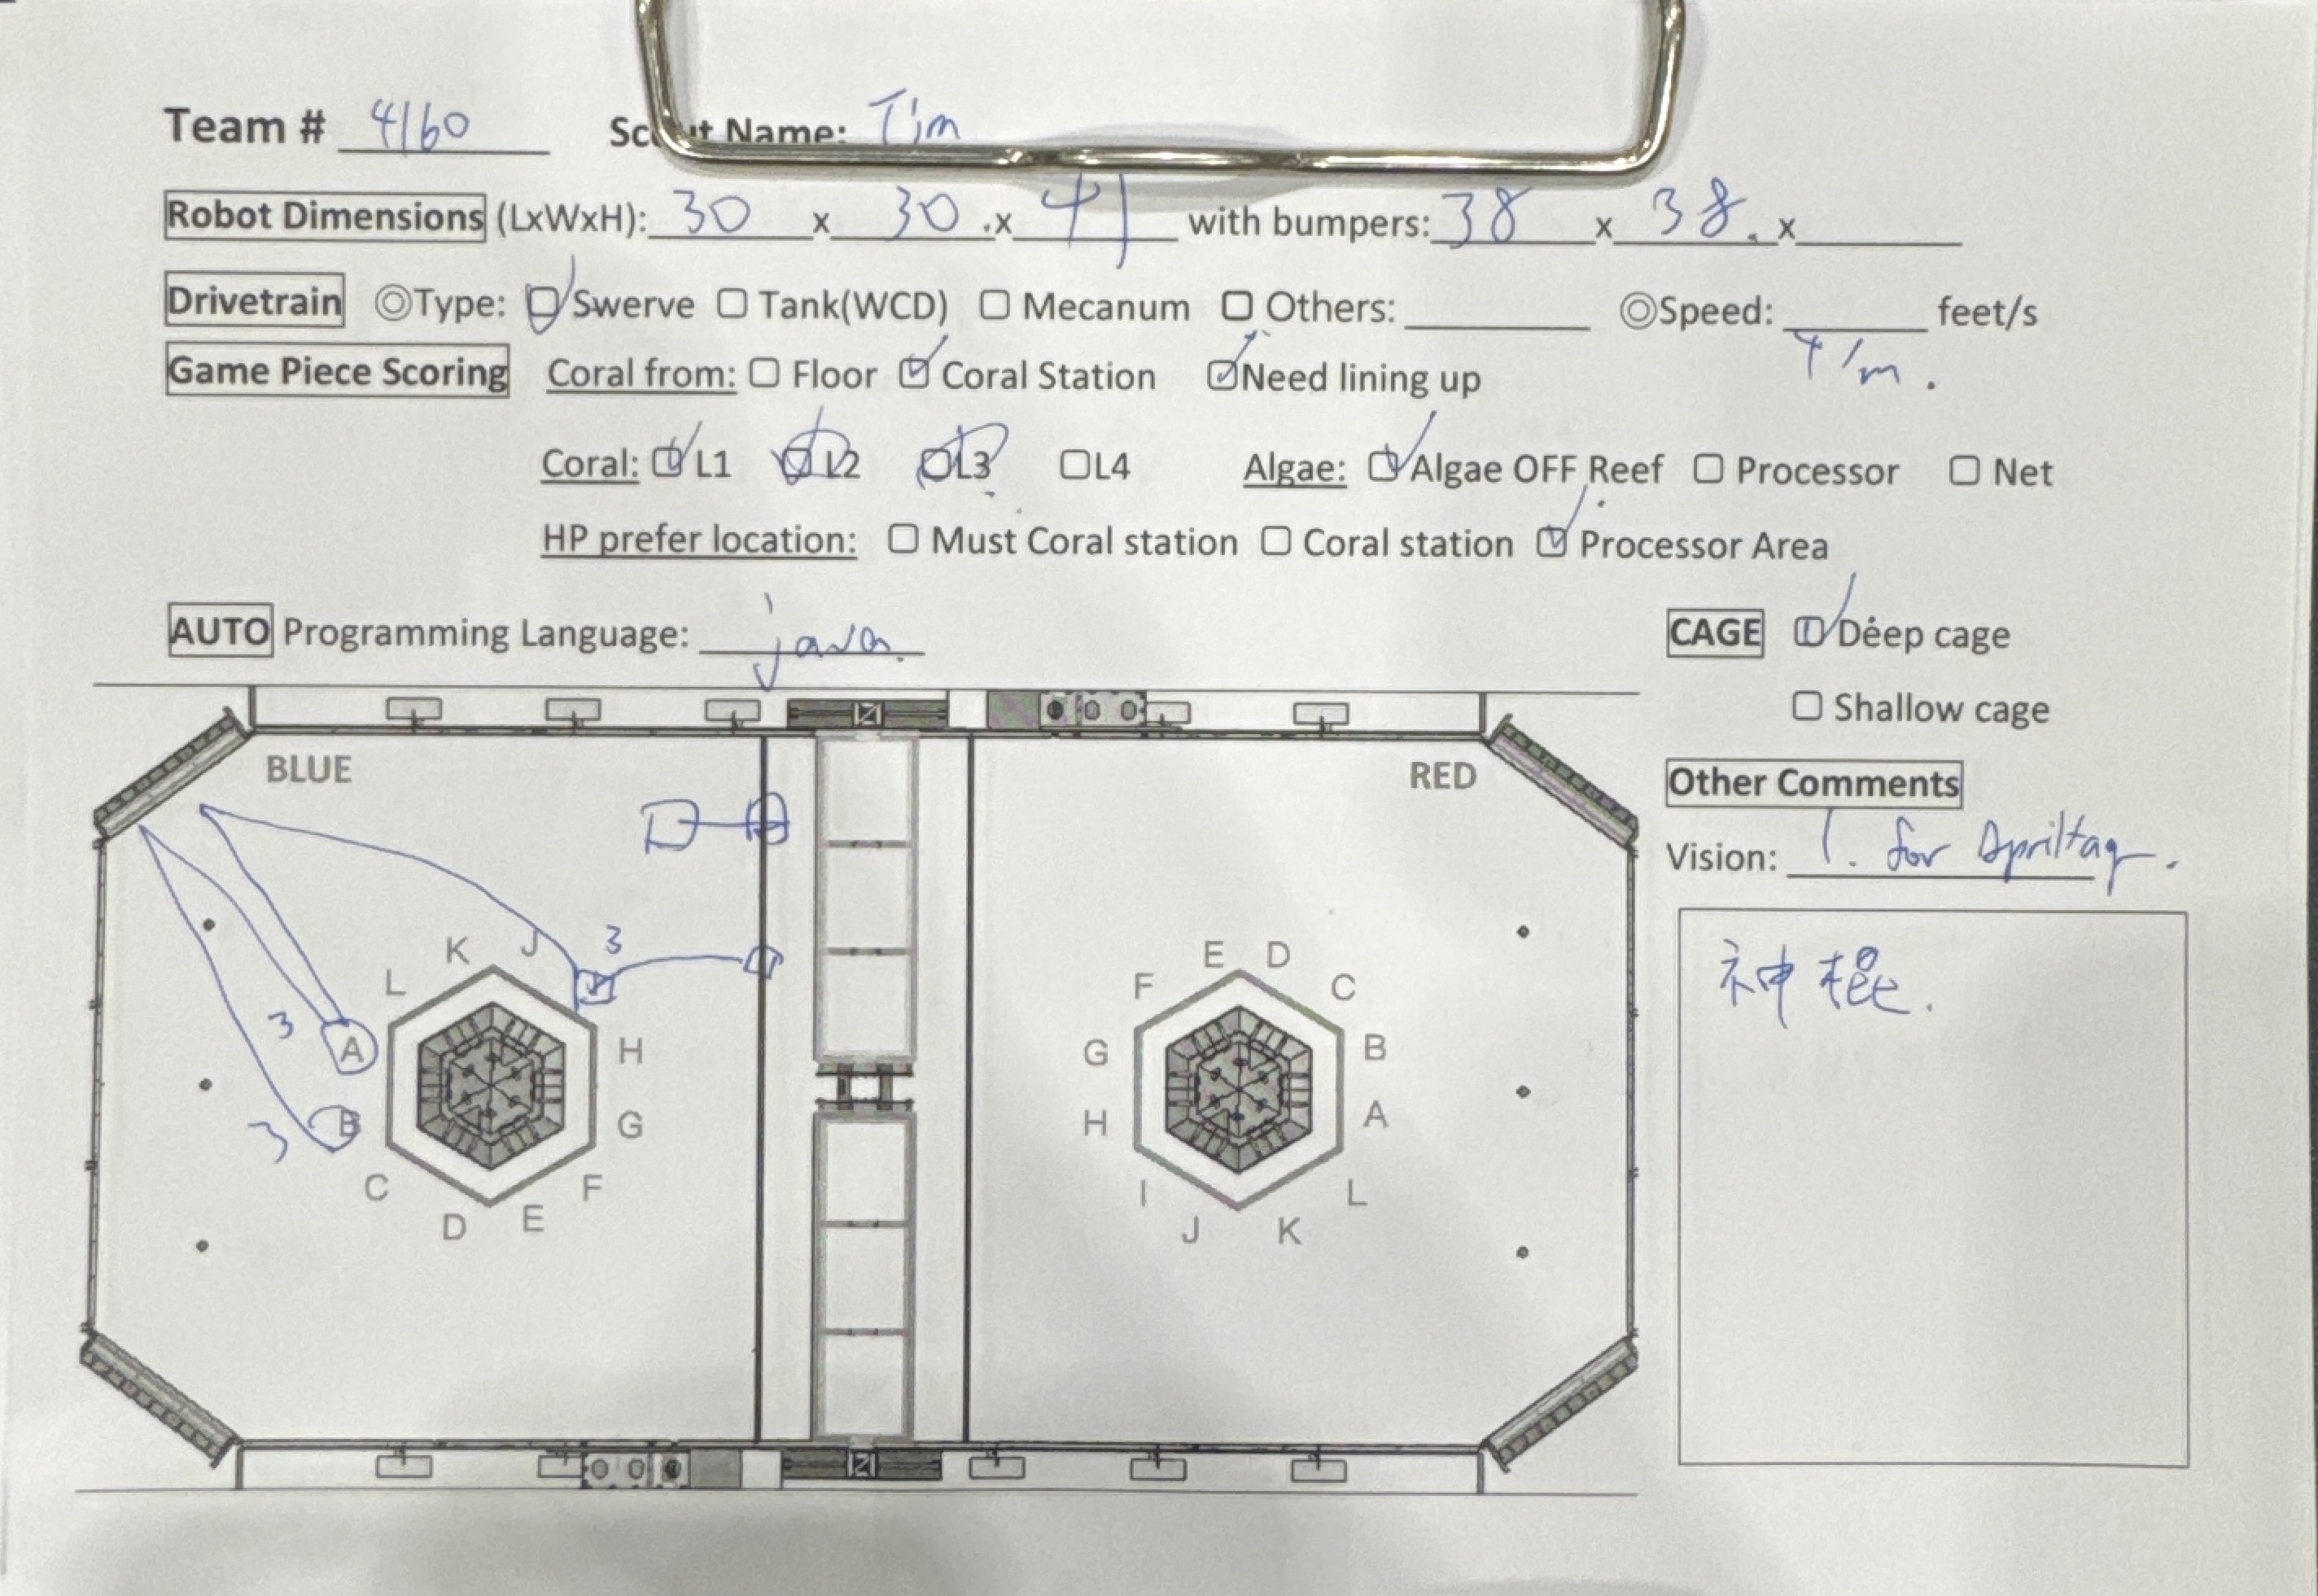 Team # 4160 Scout Name: Tim
Robot Dimensions (LxWxH): 30 x 30 .x 41 with bumpers: 38 x 38. x
Drivetrain ◎Type: ☑ Swerve ☐ Tank(WCD) ☐ Mecanum ☐ Others: ◎Speed: feet/s
4/m.
Game Piece Scoring Coral from: ☐ Floor ☑ Coral Station ☑ Need lining up
Coral: ☑ L1 ☑ L2 ☑ L3 ☐ L4 Algae: ☑ Algae OFF Reef ☐ Processor ☐ Net
HP prefer location: ☐ Must Coral station ☐ Coral station ☑ Processor Area
AUTO Programming Language: java. CAGE ☑ Deep cage
☐ Shallow cage
BLUE RED
Other Comments
Vision: 1. for Apriltag.
神棍.
K J 3 E D
L F C
3 A H G B
3 B G H A
C F I L
D E J K